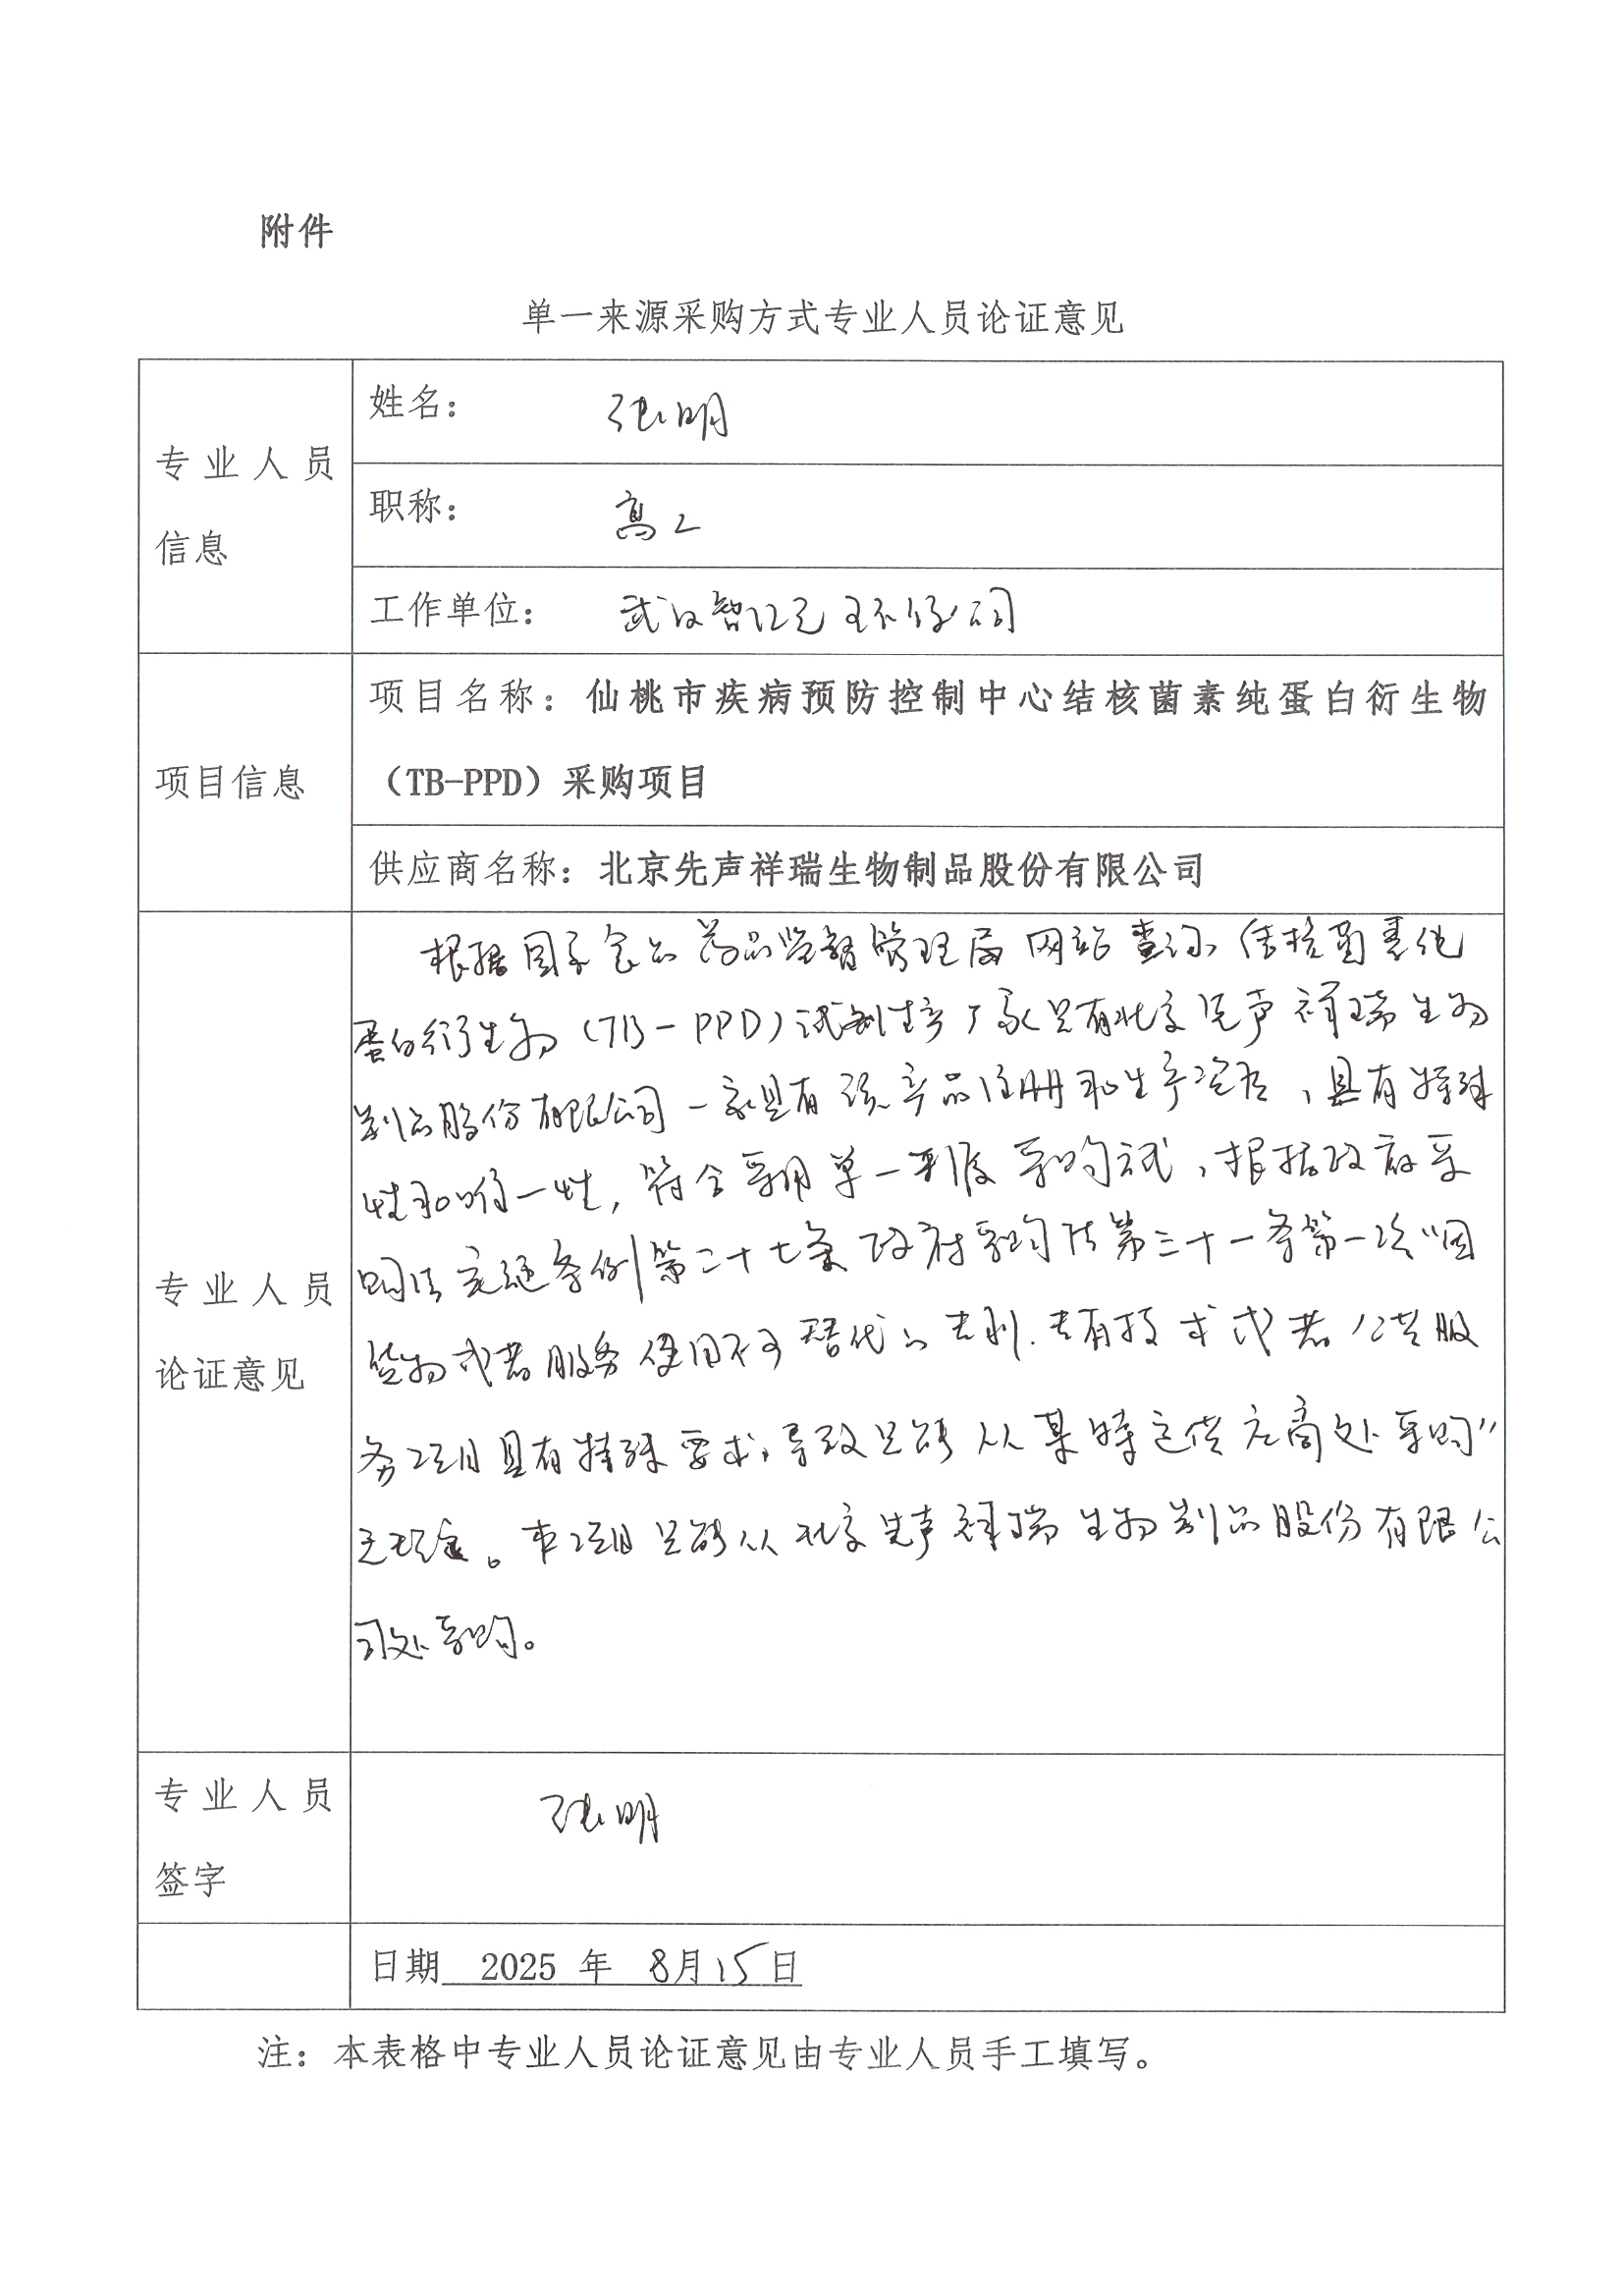 附件
单一来源采购方式专业人员论证意见
专业人员
信息
姓名： 张明
职称： 高工
工作单位： 武汉智汇元环保公司
项目信息
项目名称：仙桃市疾病预防控制中心结核菌素纯蛋白衍生物
（TB-PPD）采购项目
供应商名称：北京先声祥瑞生物制品股份有限公司
专业人员
论证意见
根据国家食品药品监督管理局网站查询，结核菌素纯
蛋白衍生物（TB-PPD）试剂生产厂家只有北京先声祥瑞生物
制品股份有限公司一家具有该产品注册和生产资质，具有特殊
性和唯一性，符合采用单一来源采购方式，根据政府采
购法实施条例第二十七条政府采购法第三十一条第一项“因
货物或者服务使用不可替代的专利、专有技术或者公共服
务项目具有特殊要求，导致只能从某特定供应商处采购”
之规定。本项目只能从北京先声祥瑞生物制品股份有限公
司处采购。
专业人员
签字
张明
日期 2025 年 8月15日
注：本表格中专业人员论证意见由专业人员手工填写。